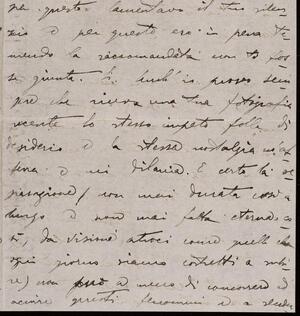 per questo lamentavo il tuo silen
zio e per questo ero in pena te
mendo la raccomandata non ti fos
se giunta. E bub' in presso sem
pre che ricevo una tua fotografia
recente lo stesso impeto folle di
desiderio e la stessa nostalgia
e mi dilania. E certo la se
parazione (non mai durata così a
lungo e non mai fatta eterna
da visioni atroci come quelle che
ogni giorno siamo costretti a subi
re) non può a meno di concorrere ad
questi fenomeni e a